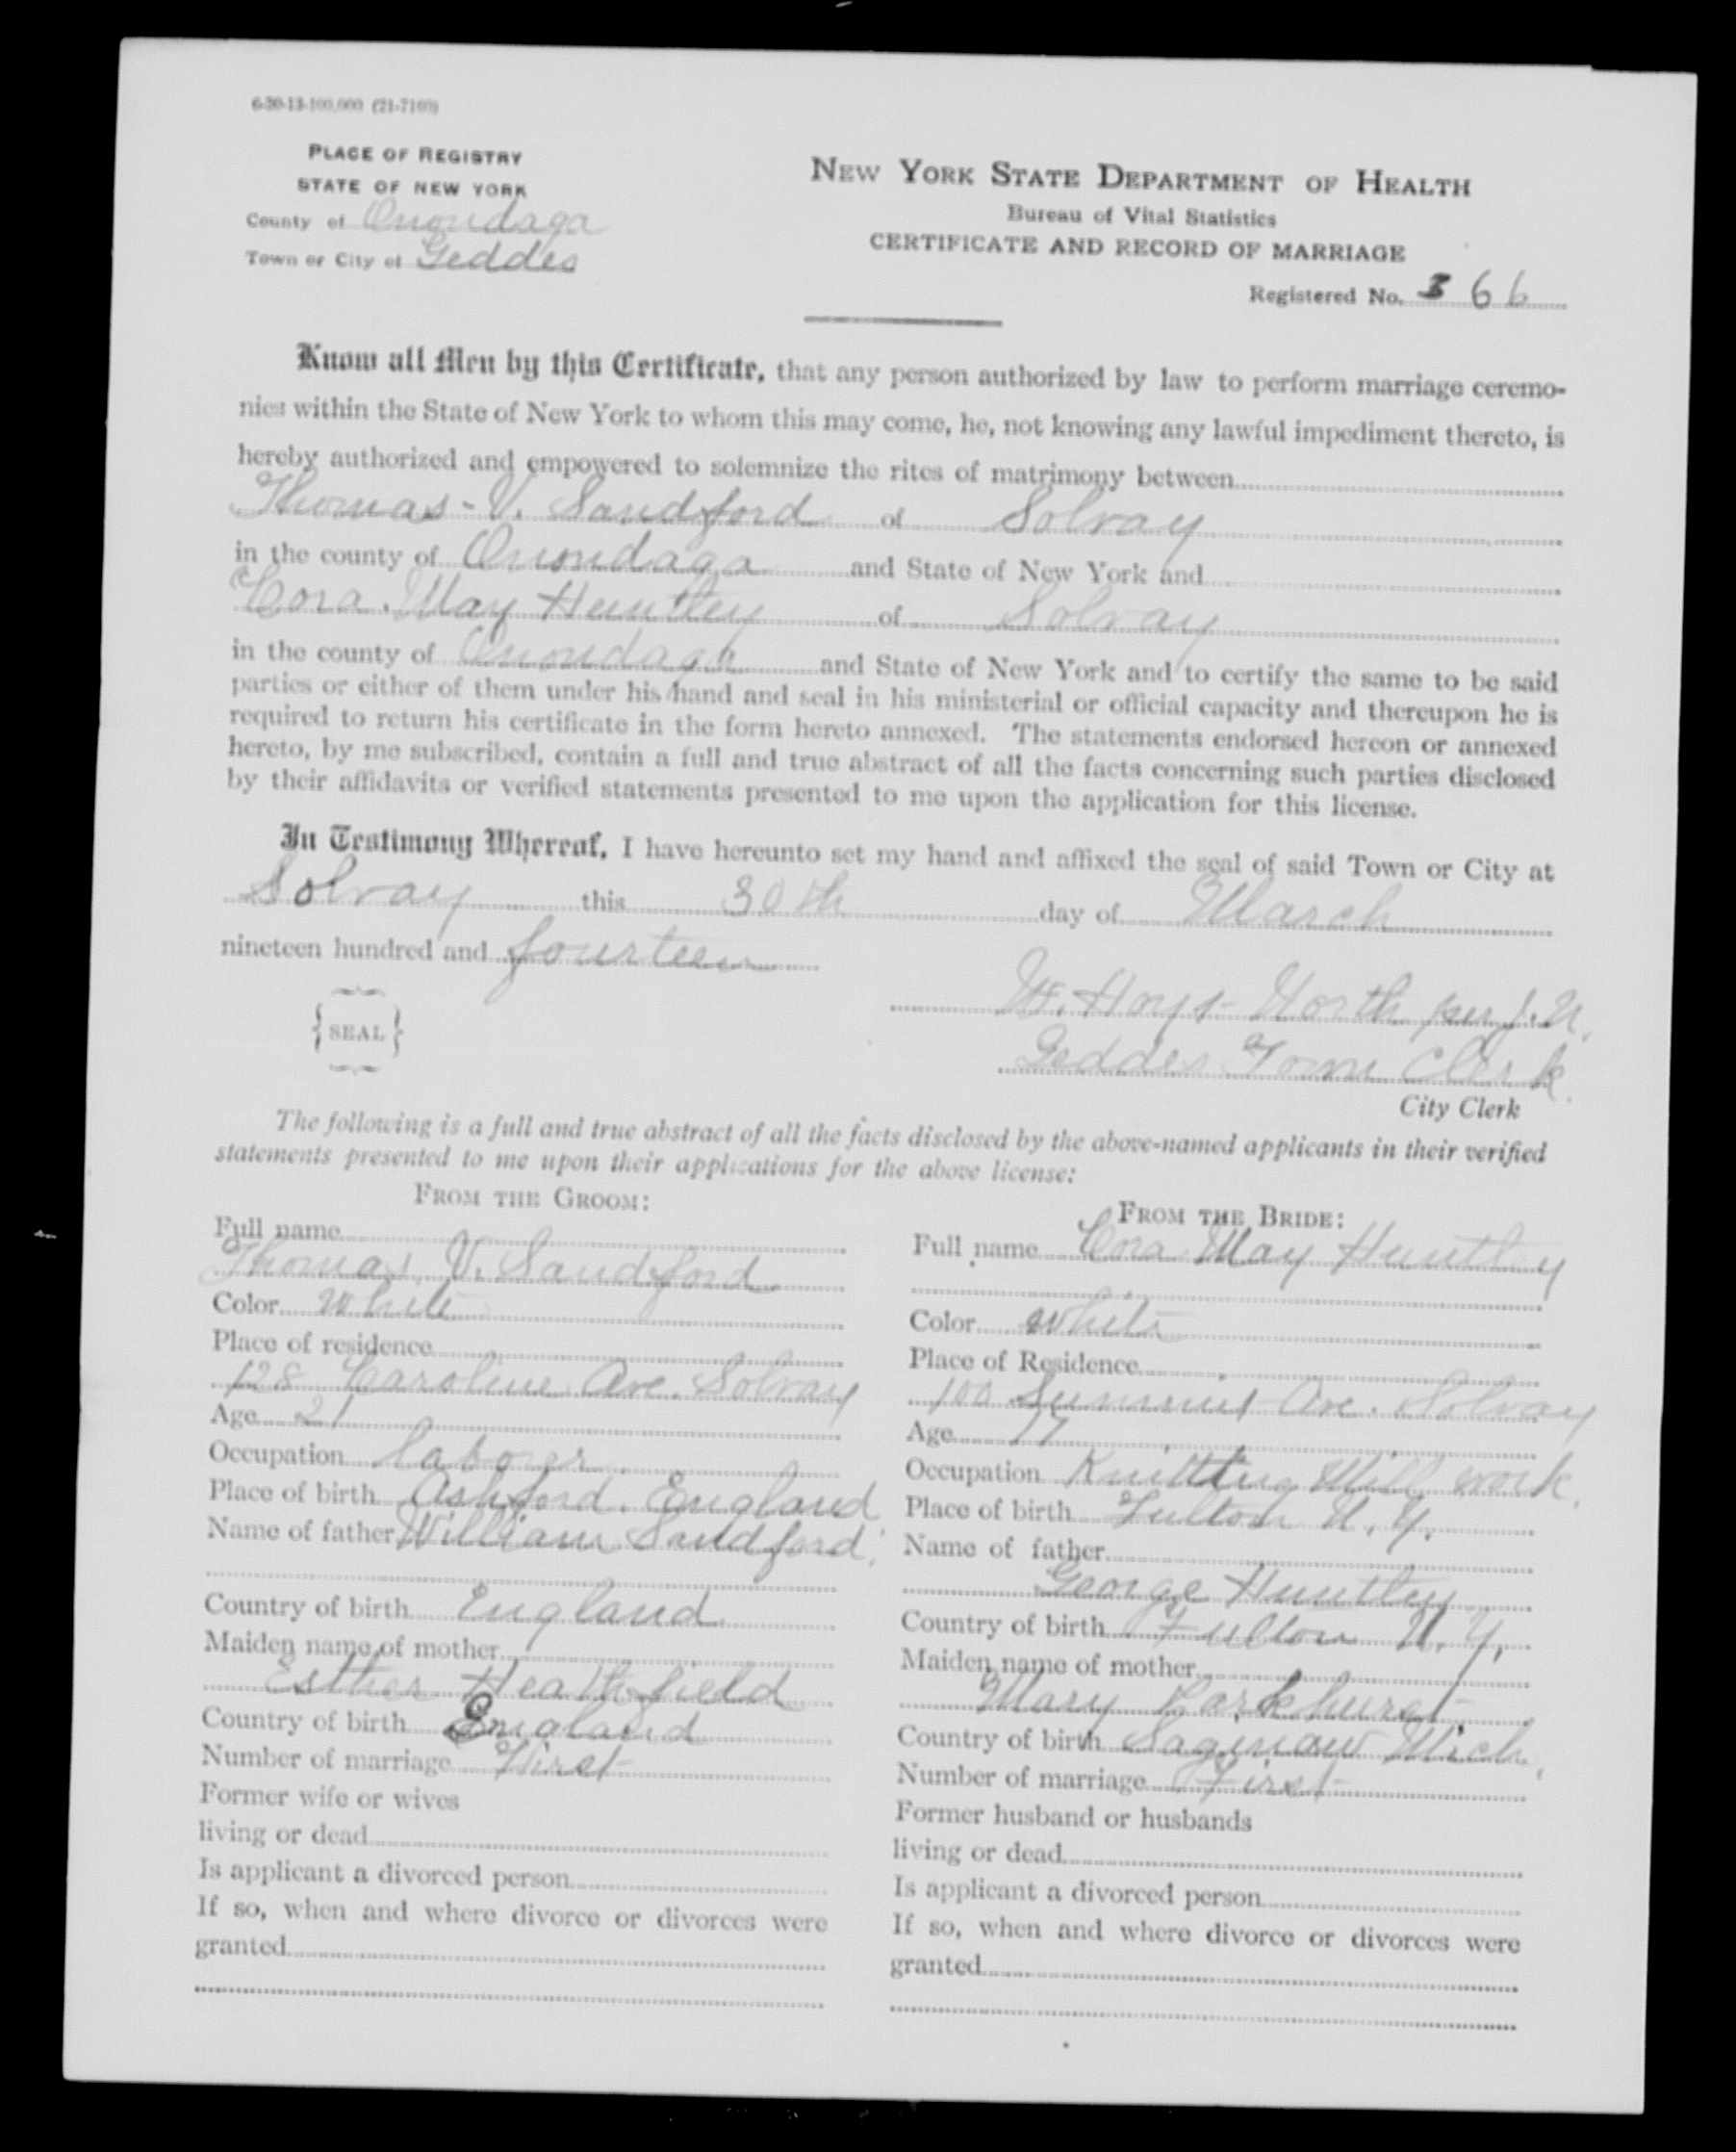 6-20-13-100,000 (21-7103)
PLACE OF REGISTRY
STATE OF NEW YORK
County of Onondaga
Town or City of Geddes
NEW YORK STATE DEPARTMENT OF HEALTH
Bureau of Vital Statistics
CERTIFICATE AND RECORD OF MARRIAGE
Registered No. 66
Know all Men by this Certificate, that any person authorized by law to perform marriage ceremo-
nies within the State of New York to whom this may come, he, not knowing any lawful impediment thereto, is
hereby authorized and empowered to solemnize the rites of matrimony between
Thomas - V. Sandford of Solvay
in the county of Onondaga and State of New York and
Cora May Huntley of Solvay
in the county of Onondaga and State of New York and to certify the same to be said
parties or either of them under his hand and seal in his ministerial or official capacity and thereupon he is
required to return his certificate in the form hereto annexed. The statements endorsed hereon or annexed
hereto, by me subscribed, contain a full and true abstract of all the facts concerning such parties disclosed
by their affidavits or verified statements presented to me upon the application for this license.
In Testimony Whereof, I have hereunto set my hand and affixed the seal of said Town or City at
Solvay this 30th day of March
nineteen hundred and fourteen
W. Hoyt North per J. N.
SEAL
Geddes Town Clerk.
City Clerk
The following is a full and true abstract of all the facts disclosed by the above-named applicants in their verified
statements presented to me upon their applications for the above license:
FROM THE GROOM:
Full name
Thomas V. Sandford
Color White
Place of residence
128 Caroline Ave. Solvay
Age 21
Occupation Laborer
Place of birth Ashford. England
Name of father William Sandford.
Country of birth England
Maiden name of mother
Esther Heathfield
Country of birth England
Number of marriage First
Former wife or wives
living or dead
Is applicant a divorced person
If so, when and where divorce or divorces were
granted
FROM THE BRIDE:
Full name Cora May Huntley
Color White
Place of Residence
100 Summit Ave. Solvay
Age
Occupation Knitting Mill work.
Place of birth Fulton N. Y.
Name of father
George Huntley
Country of birth Fulton N. Y.
Maiden name of mother
Mary Parkhurst
Country of birth Saginaw Mich.
Number of marriage First
Former husband or husbands
living or dead
Is applicant a divorced person
If so, when and where divorce or divorces were
granted